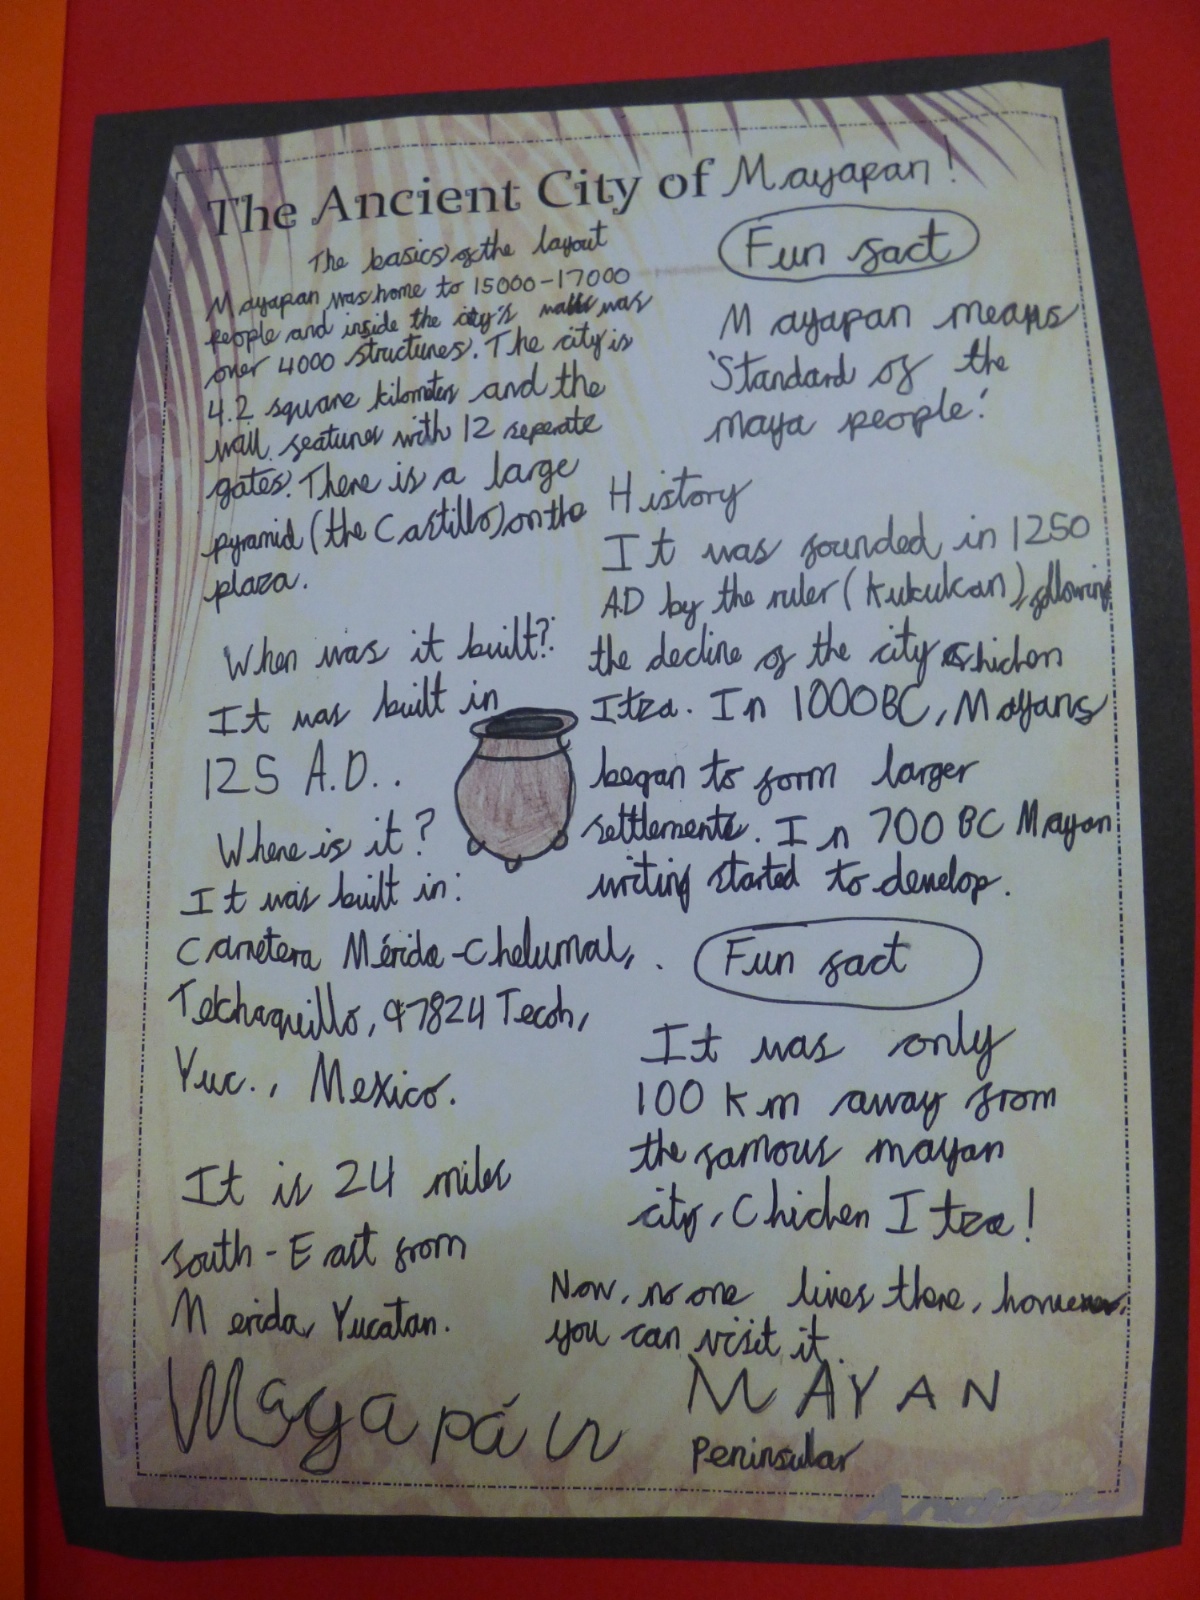 The Ancient City of Mayapan!
The basics of the layout
Mayapan was home to 15000-17000
people and inside the city's walls was
over 4000 structures. The city is
4.2 square kilometers and the
wall featured with 12 seperate
gates. There is a large
pyramid (the Castillo) on the
plaza.
When was it built?
It was built in
125 A.D..
Where is it?
It was built in:
Carretera Mérida-Chetumal,
Telchaquillo, 97824 Tecoh,
Yuc., Mexico.
It is 24 miles
south-East from
Merida, Yucatan.
Mayapán
Fun fact
Mayapan means
'Standard of the
maya people.'
History
It was founded in 1250
AD by the ruler (Kukulcan), following
the decline of the city Chichen
Itza. In 1000BC, Mayans
began to form larger
settlements. In 700 BC Mayan
writing started to develop.
Fun fact
It was only
100 km away from
the famous mayan
city, Chichen Itza!
Now, no one lives there, however,
you can visit it.
MAYAN
Peninsular
Andrew